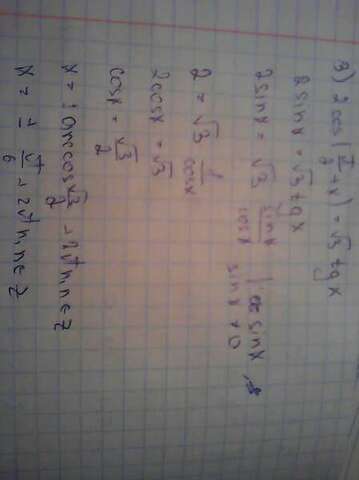 3) 2cos(π/2 + x) = √3 tg x
2sinx = √3 tg x
2sinx = √3 sinx/cosx | : sinx, sinx ≠ 0
2 = √3 1/cosx
2cosx = √3
cosx = √3/2
x = ± arccos √3/2 + 2πn, n∈Z
x = ± π/6 + 2πn, n∈Z